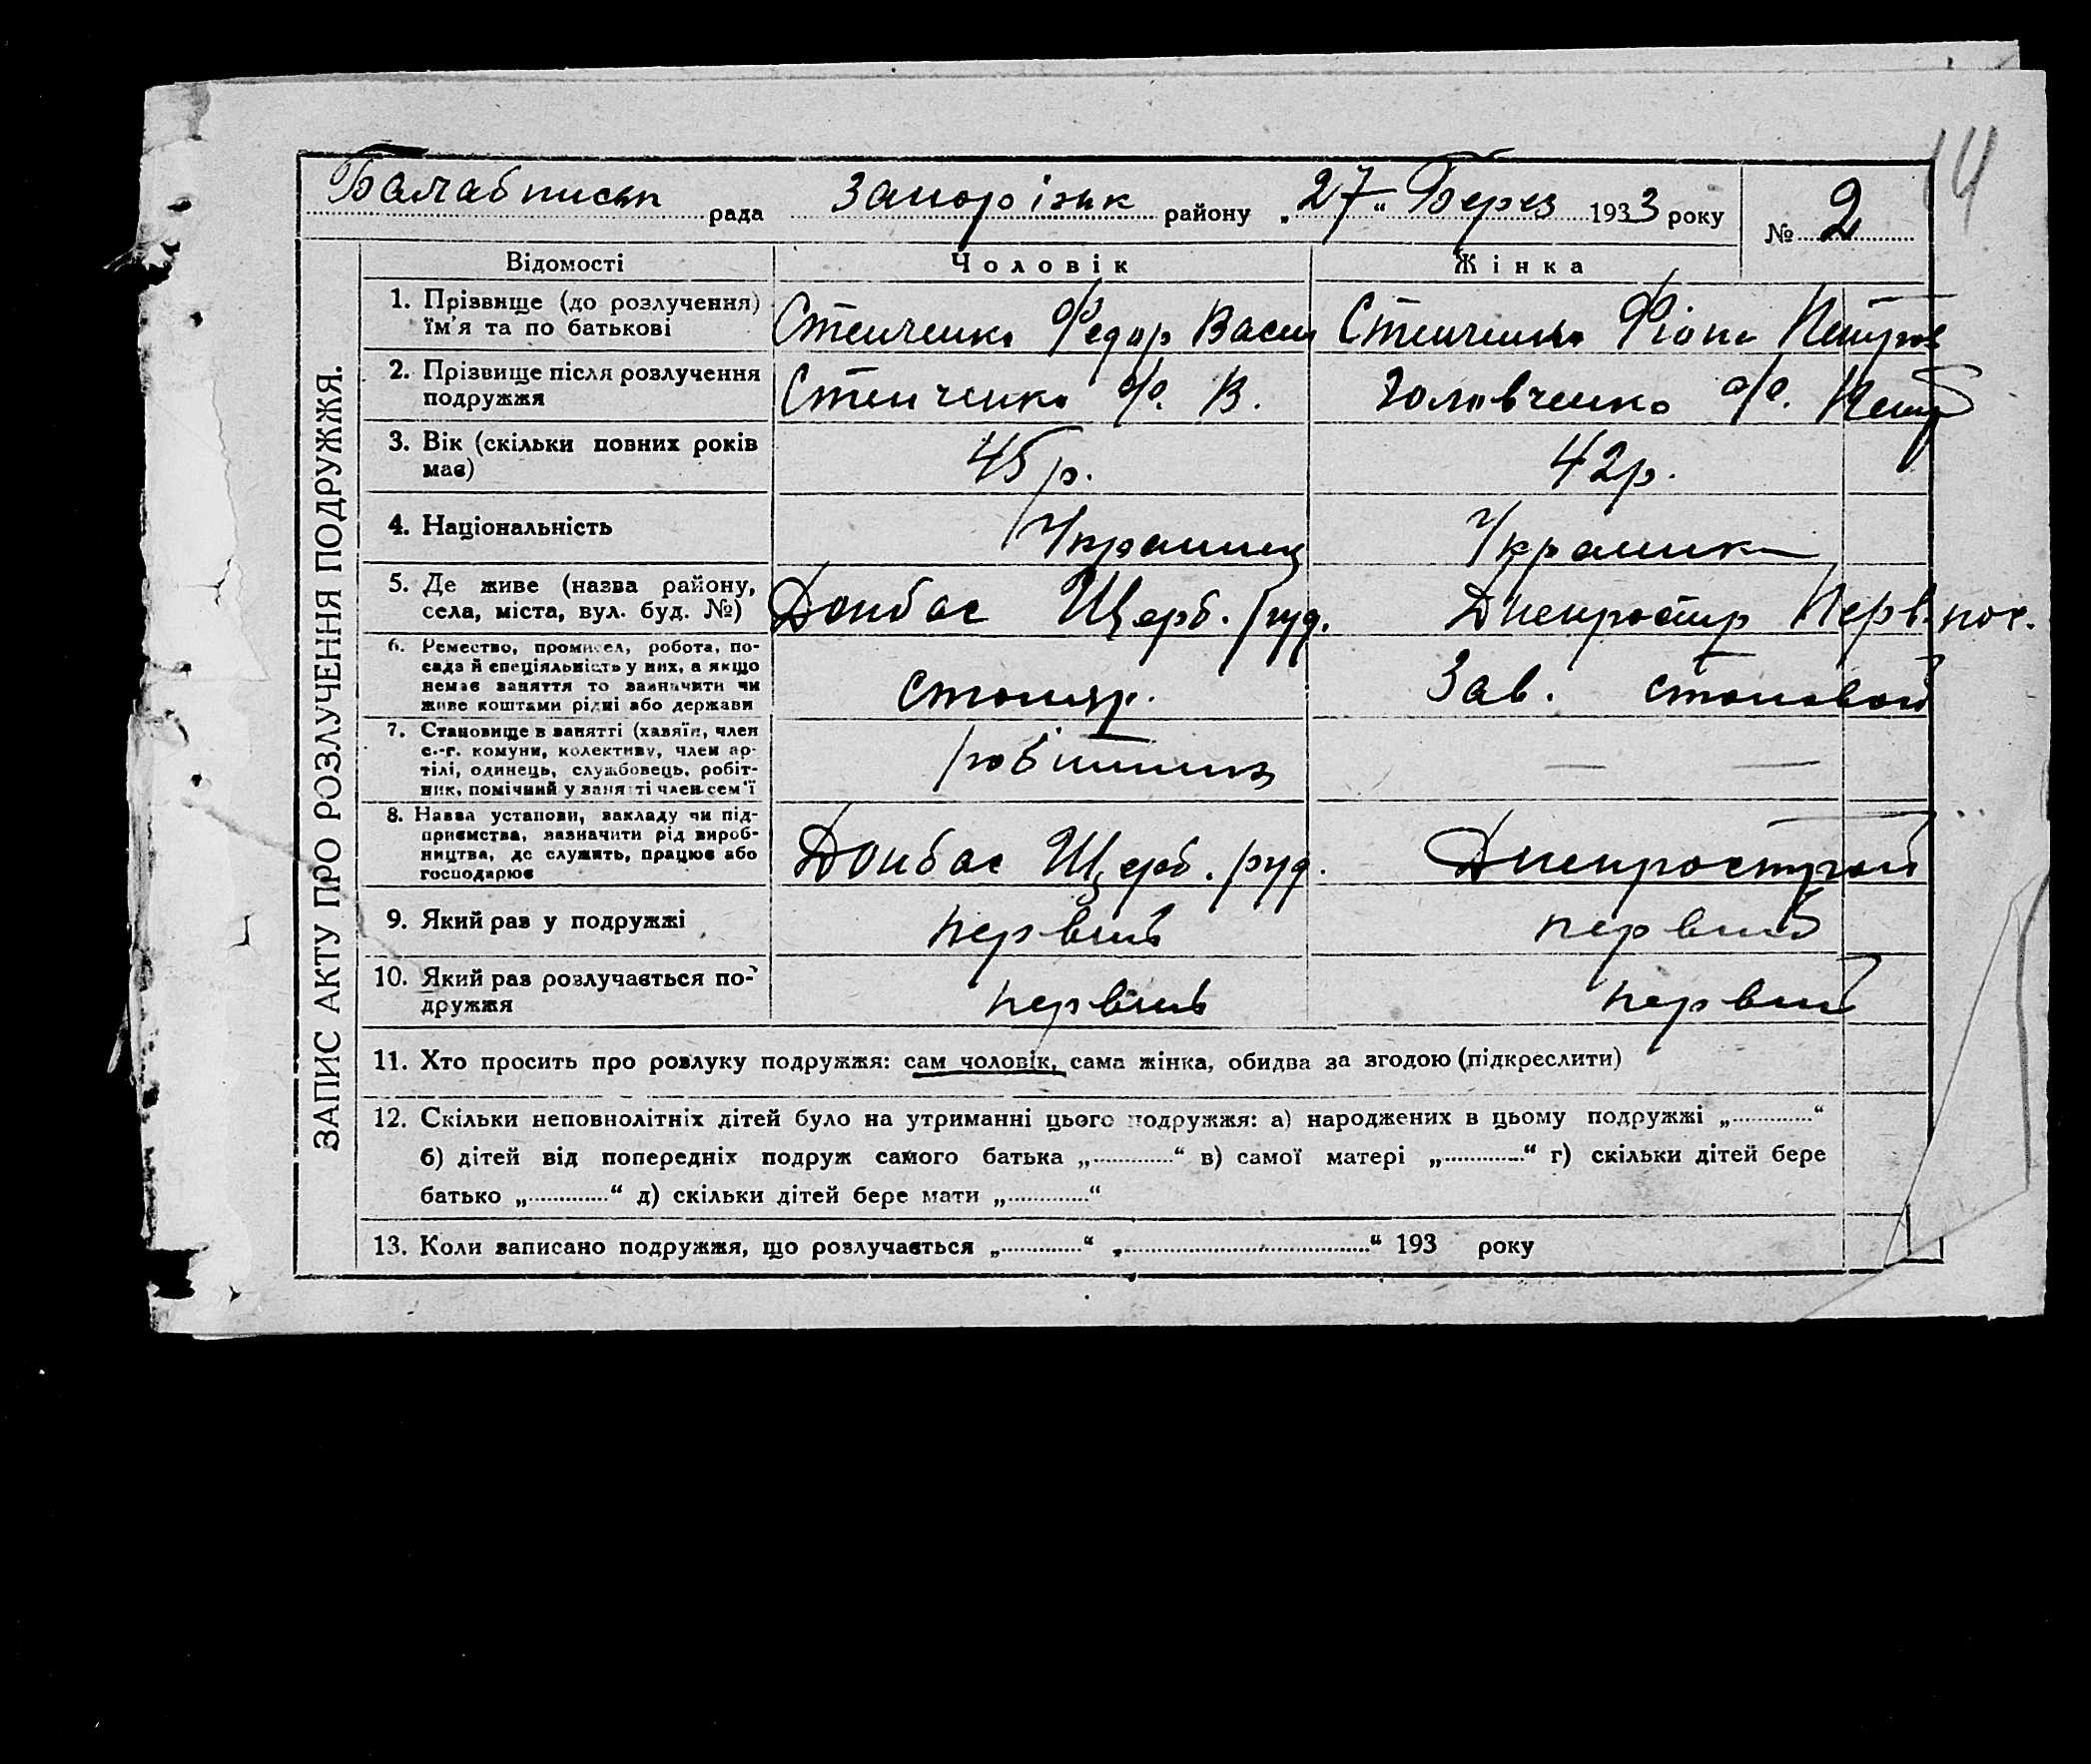 14
Балабинськ рада Запорізьк району „27“ Берез 1933 року № 2
ЗАПИС АКТУ ПРО РОЗЛУЧЕННЯ ПОДРУЖЖЯ.
Відомості Чоловік Жінка
1. Прізвище (до розлучення) Стенченко Федор Васил Стенченко Фіона Петров
їм'я та по батькові
2. Прізвище після розлучення Стенченко Ф. В. Головченко Ф. Петр
подружжя
3. Вік (скільки повних років 45 р. 42 р.
має)
4. Національність Украинец Украинка
5. Де живе (назва району, Донбас Щерб. руд. Днепростр Перв. пос.
села, міста, вул. буд. №)
6. Ремество, промисел, робота, по-
сада й спеціяльність у них, а якщо
немає заняття то зазначити чи столяр. Зав. столовой
живе коштами рідні або держави
7. Становище в занятті (хазяїн, член
с.-г. комуни, колективу, член ар- робітник — —
тілі, одинець, службовець, робіт-
ник, помічний у занятті член сем'ї
8. Назва установи, закладу чи під-
приємства, зазначити рід вироб- Донбас Щерб. руд. Днепрострой
ництва, де служить, працює або
господарює
9. Який раз у подружжі первий первий
10. Який раз розлучається по- первий первий
дружжя
11. Хто просить про розлуку подружжя: сам чоловік, сама жінка, обидва за згодою (підкреслити)
12. Скільки неповнолітніх дітей було на утриманні цього подружжя: а) народжених в цьому подружжі „.............“
б) дітей від попередніх подруж самого батька „.............“ в) самої матері „.............“ г) скільки дітей бере
батько „.............“ д) скільки дітей бере мати „.............“
13. Коли записано подружжя, що розлучається „.............“ „.............“ 193 року